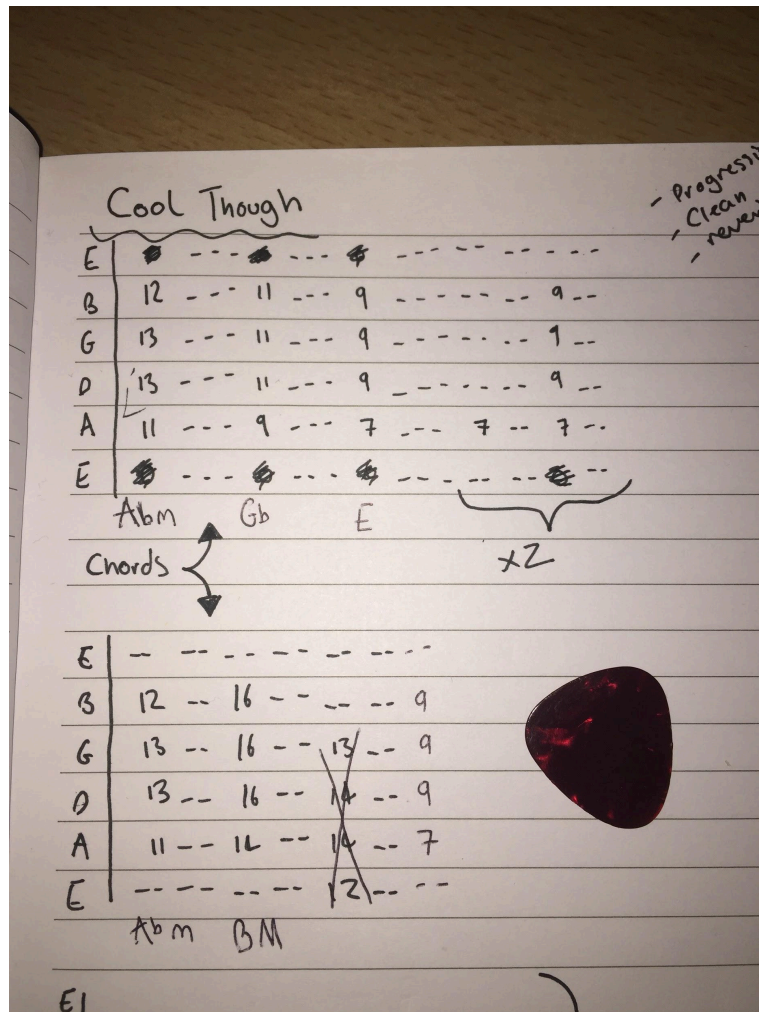 Cool Though
- Progressi
- Clean
- rever
E --- --- --- --- ---
B 12 --- 11 --- 9 ------ 9 --
G 13 --- 11 --- 9 ------ 9 --
D 13 --- 11 --- 9 ------ 9 --
A 11 --- 9 --- 7 --- 7 -- 7 --
E --- --- --- --- --
Abm Gb E
x2
Chords
E -- -- -- -- -- -- --
B 12 -- 16 -- -- -- 9
G 13 -- 16 -- 13 -- 9
D 13 -- 16 -- 14 -- 9
A 11 -- 14 -- 14 -- 7
E -- -- -- -- 12 -- --
Abm BM
E|